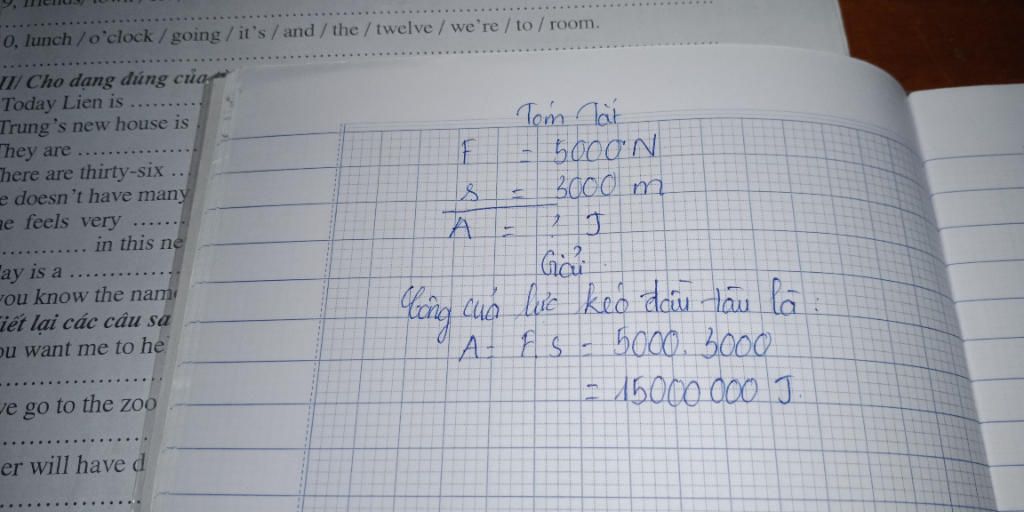 0, lunch / o'clock / going / it's / and / the / twelve / we're / to / room.
II/ Cho dạng đúng của
Today Lien is ..........
Trung's new house is
They are ................
here are thirty-six ..
e doesn't have many
ne feels very .......
........... in this ne
ay is a ................
you know the nam
iết lại các câu sa
ou want me to he
ve go to the zoo
er will have d
Tóm Tắt
F = 5000 N
s = 3000 m
A = ? J
Giải
Công của lực kéo đầu tàu là :
A = F. S = 5000. 3000
= 15000 000 J.